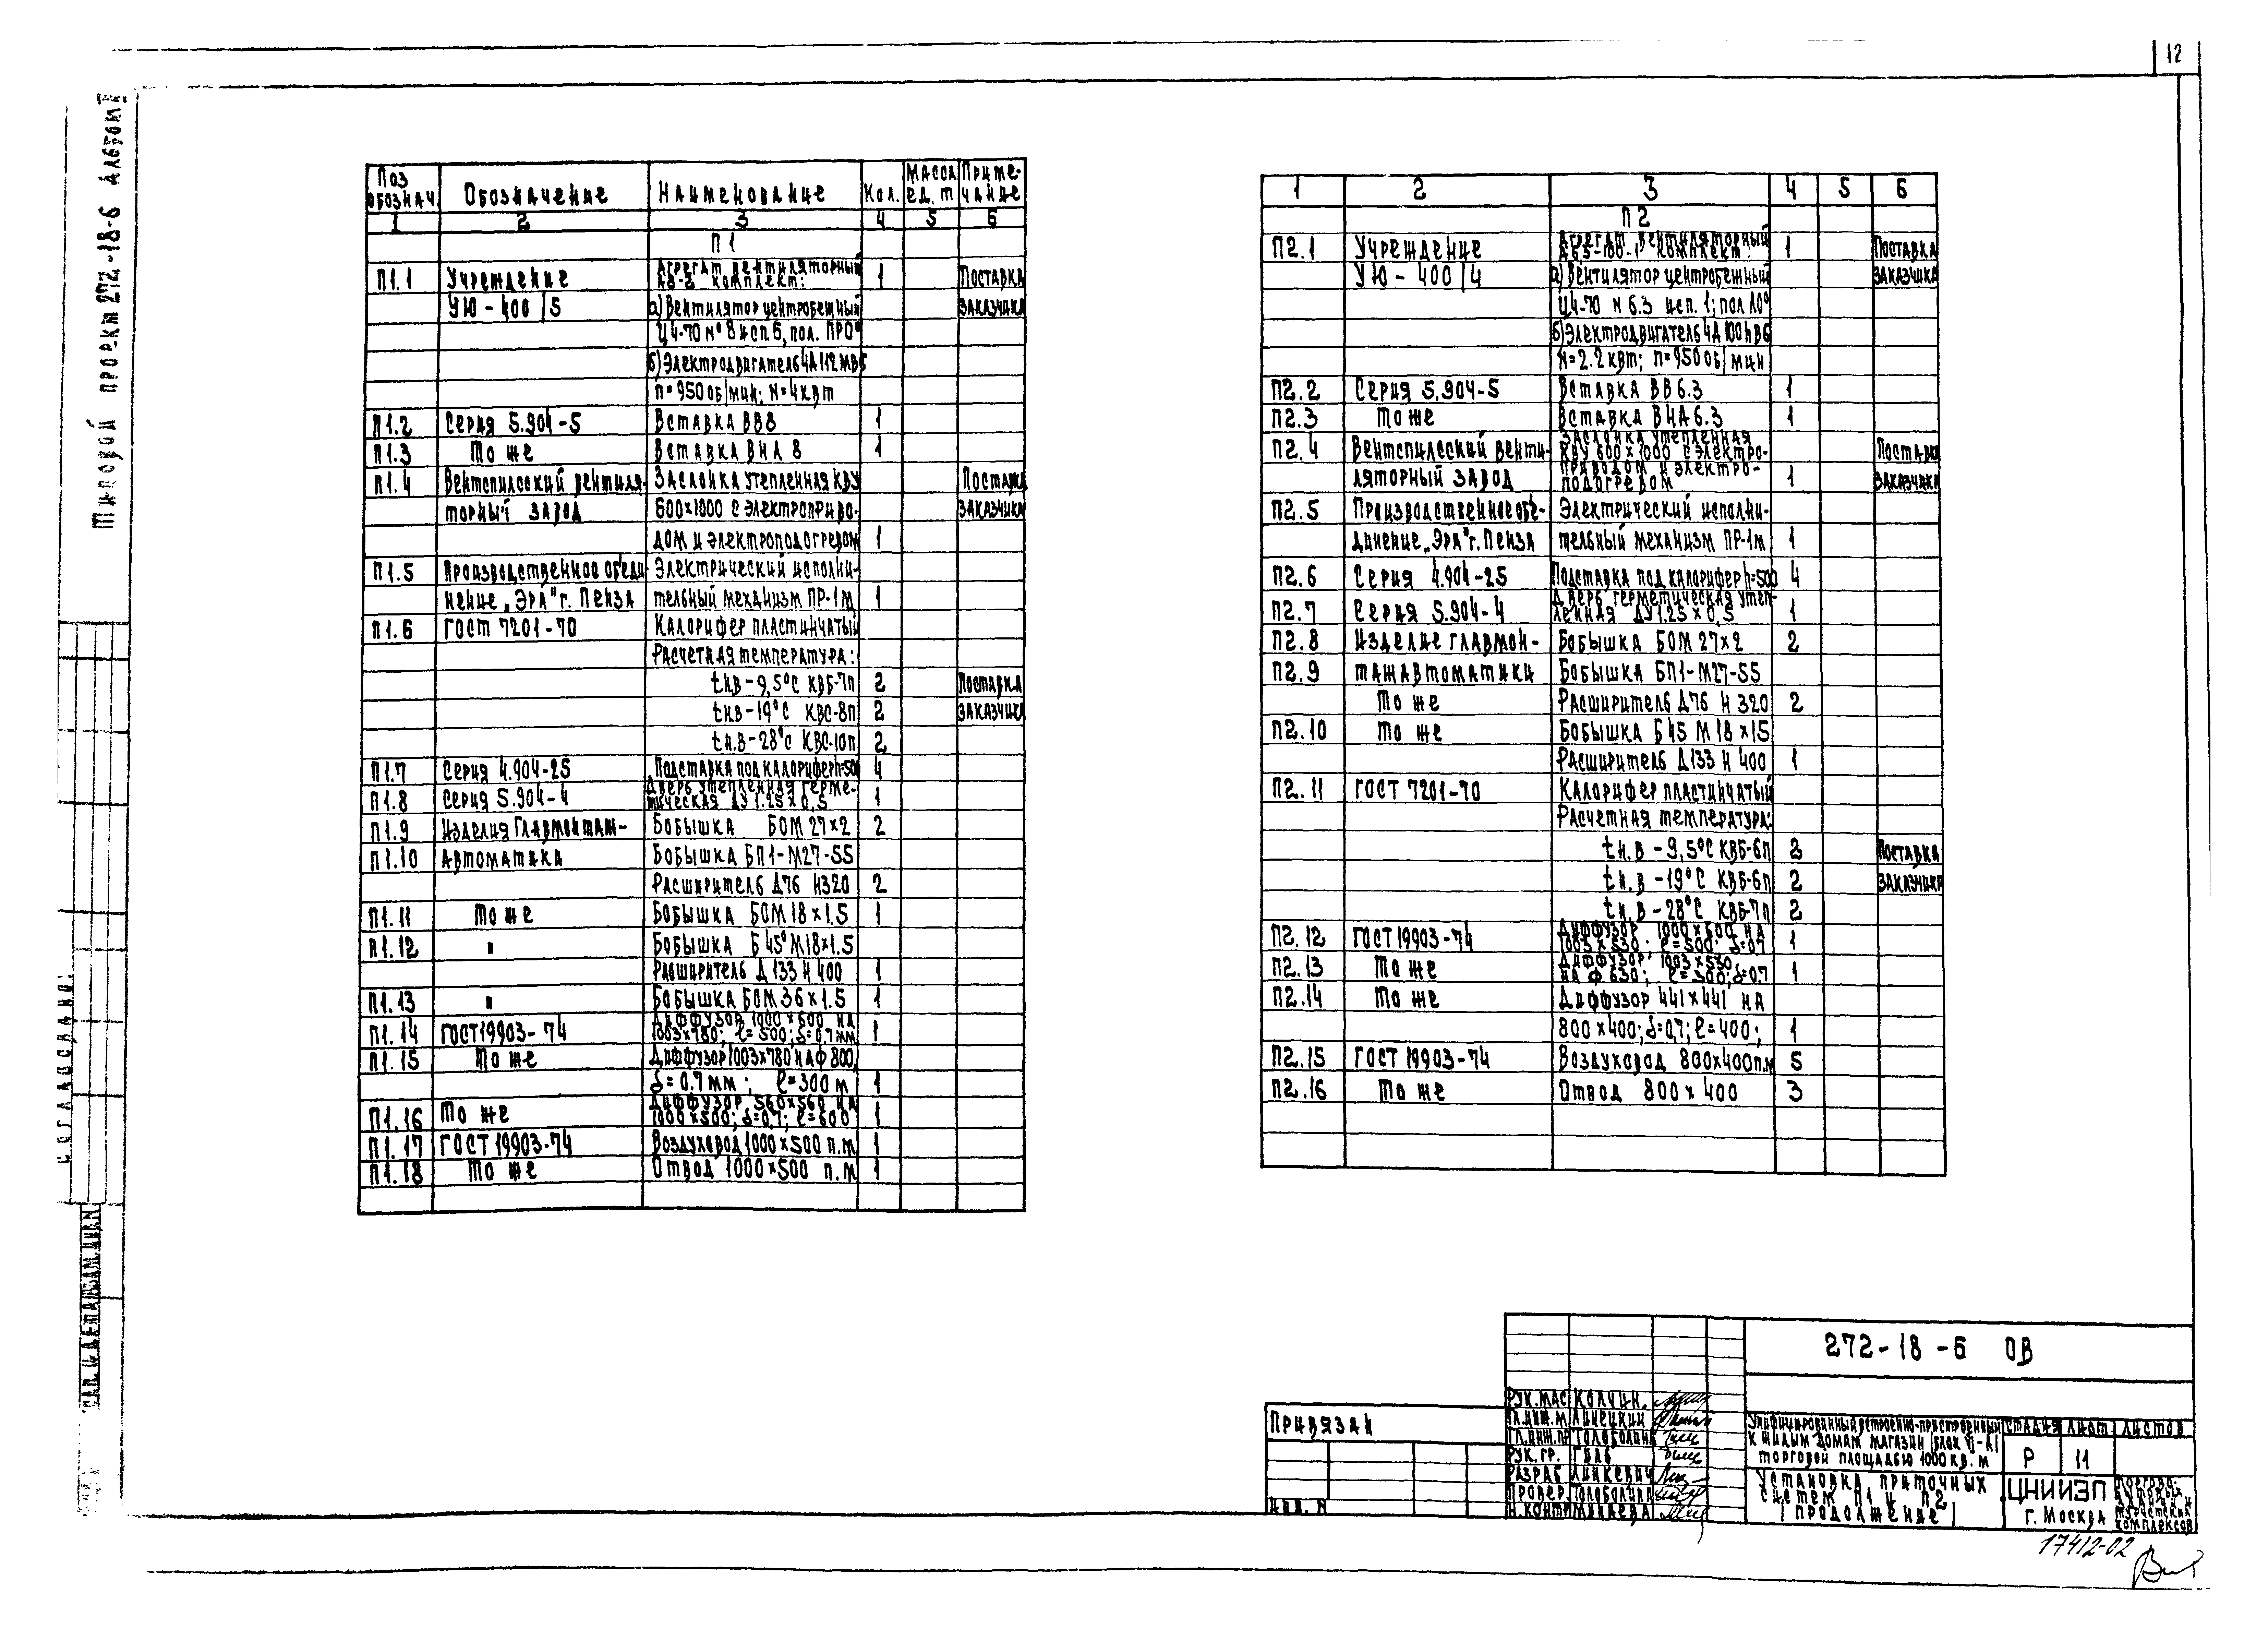 12
Типовой проект 272-18-6 Альбом
Поз обознач. Обозначение Наименование Кол. Масса ед. т Примечание
1 2 3 4 5 6
П 1
П1.1 Учреждение Агрегат вентиляторный 1 Поставка
А8-2 комплект:
УЮ - 400/5 а) Вентилятор центробежный заказчика
Ц4-70 №8 исп.6, пол. ПР0°
б) Электродвигатель 4А112МВ6
n=950 об/мин; N=4квт
П1.2 Серия 5.904-5 Вставка ВВ8 1
П1.3 То же Вставка ВНА 8 1
П1.4 Вентспилсский вентиля- Заслонка утепленная КВУ Поставка
торный завод 600х1000 с электроприво- заказчика
дом и электроподогревом 1
П1.5 Производственное объеди- Электрический исполни-
нение „Эра" г. Пенза тельный механизм ПР-1м 1
П1.6 ГОСТ 7201-70 Калорифер пластинчатый
Расчетная температура:
tн.в -9,5°С КВБ-7п 2 Поставка
tн.в -19°С КВС-8п 2 заказчика
tн.в -28°С КВС-10п 2
П1.7 Серия 4.904-25 Подставка под калорифер h=500 4
П1.8 Серия 5.904-4 Дверь утепленная герме-
тическая ДУ 1.25х0,5 1
П1.9 Изделия Главмонтаж- Бобышка БОМ 27х2 2
П1.10 автоматика Бобышка БП1-М27-55
Расширитель Д76 Н320 2
П1.11 То же Бобышка БОМ 18х1.5 1
П1.12 " Бобышка Б 45° М18х1.5
Расширитель Д 133 Н 400 1
П1.13 " Бобышка БОМ 36х1.5 1
П1.14 ГОСТ 19903-74 Диффузор 1000х500 на
1003х780; ℓ=500; δ=0,7мм 1
П1.15 То же Диффузор 1003х780 на ф 800,
δ=0.7мм; ℓ=300 м 1
П1.16 То же Диффузор 560х560 на
1000х500; δ=0,7; ℓ=600 1
П1.17 ГОСТ 19903-74 Воздуховод 1000х500 п.м 1
П1.18 То же Отвод 1000х500 п.м 1
1 2 3 4 5 6
П 2
П2.1 Учреждение Агрегат вентиляторный 1 Поставка
А6.3-100-1 комплект:
УЮ - 400/4 а) Вентилятор центробежный заказчика
Ц4-70 N 6.3 исп. 1; пол Л0°
б) Электродвигатель 4А100LВ6
N=2.2 квт; n=950 об/мин
П2.2 Серия 5.904-5 Вставка ВВ 6.3 1
П2.3 То же Вставка ВНА 6.3 1
П2.4 Вентспилсский венти- Заслонка утепленная Поставка
КВУ 600х1000 с электро-
ляторный завод приводом и электро- 1 заказчика
подогревом
П2.5 Производственное объе- Электрический исполни-
динение „Эра" г. Пенза тельный механизм ПР-1м 1
П2.6 Серия 4.904-25 Подставка под калорифер h=500 4
П2.7 Серия 5.904-4 Дверь герметическая утеп-
ленная ДУ1.25х0,5 1
П2.8 Изделие главмон- Бобышка БОМ 27х2 2
П2.9 тажавтоматики Бобышка БП1-М27-55
То же Расширитель Д76 Н 320 2
П2.10 То же Бобышка Б45 М 18х15
Расширитель Д133 Н 400 1
П2.11 ГОСТ 7201-70 Калорифер пластинчатый
Расчетная температура:
tн.в -9,5°С КВБ-6п 2 Поставка
tн.в -19°С КВБ-6п 2 заказчика
tн.в -28°С КВБ-7п 2
П2.12 ГОСТ 19903-74 Диффузор 1000х500 на
1003х530; ℓ=500; δ=0,7 1
П2.13 То же Диффузор 1003х530
на ф 630; ℓ=300; δ=0,7 1
П2.14 То же Диффузор 441х441 на
800х400; δ=0,7; ℓ=400; 1
П2.15 ГОСТ 19903-74 Воздуховод 800х400п.м 5
П2.16 То же Отвод 800х400 3
Согласовано:
Привязан
Инв. N
Рук.мас Колчин
Гл.инж.м Линецкий
Гл.инж.пр Голоболина
Рук.гр.
Разраб Линкевич
Провер. Голоболина
Н.контр Минаева
272-18-6 ОВ
Унифицированный встроенно-пристроенный
к жилым домам магазин
торговой площадью 1000 кв.м
стадия лист листов
Р 11
Установка приточных
систем П1 и П2
/продолжение/
ЦНИИЭП
г. Москва
торгово-
бытовых
зданий и
туристских
комплексов
17412-02